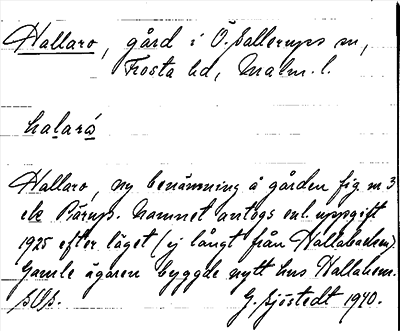 Hallaro, gård i Ö. Sallerups sn,
Frosta hd, Malm. l.
halarò
Hallaro, ny benämning å gården fig. nr 3
Bärup. Namnet antogs enl. uppgift
1925 efter läget (ej långt från Hallabacken).
Gamle ägaren byggde nytt hus Hallahem.
G. Sjöstedt 1940.